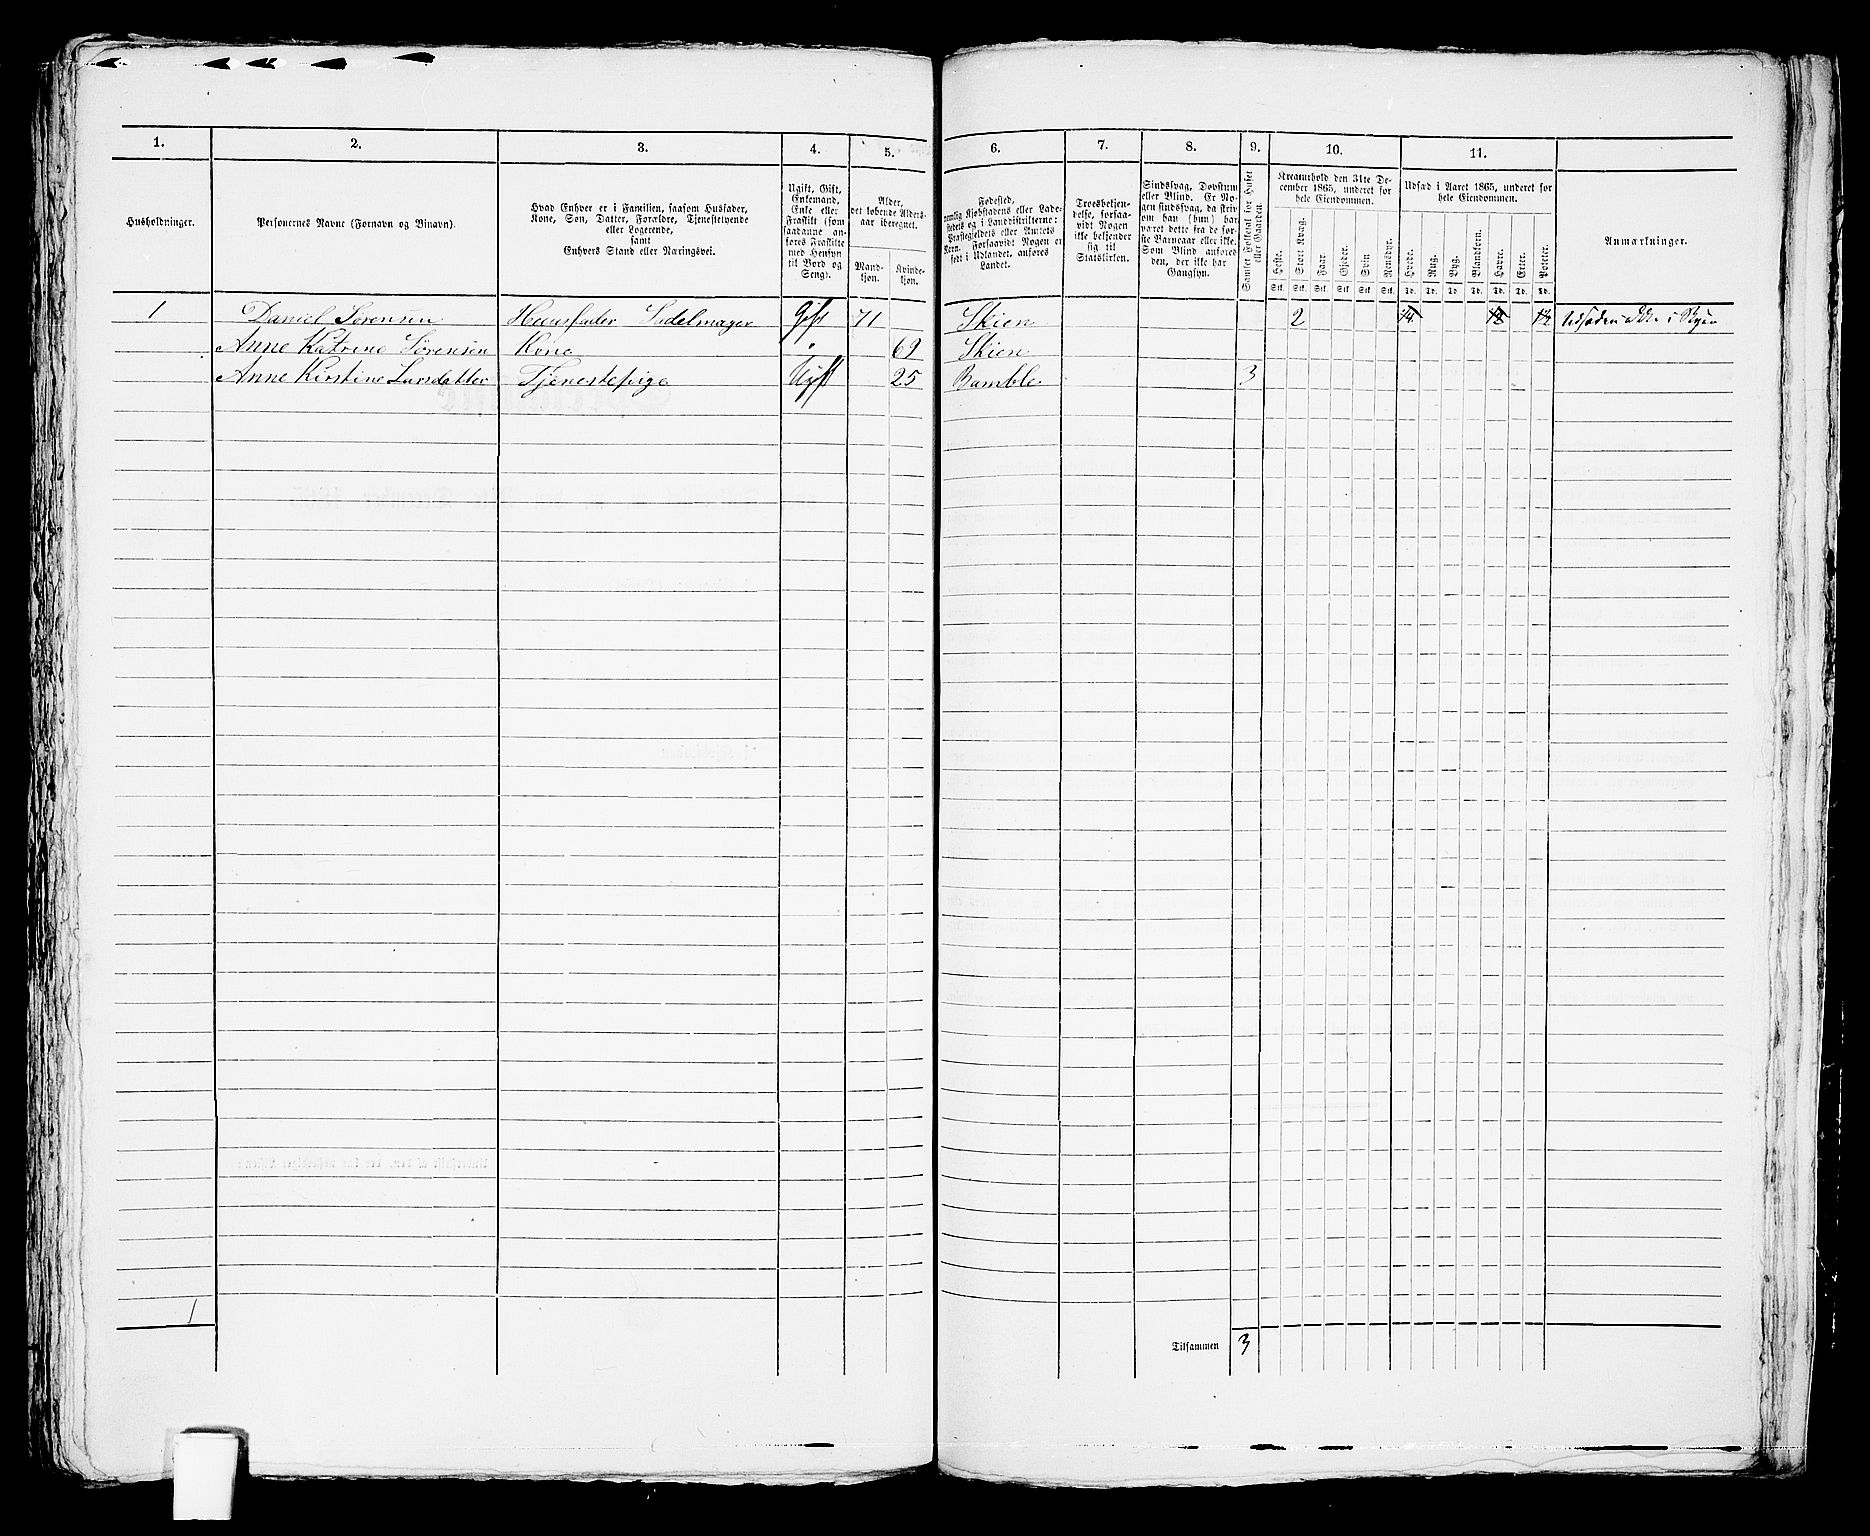 1. 2. 3. 4. 5. 6. 7. 8. 9. 10. 11.
Husholdninger.
Personernes Navne (Fornavn og Binavn).
Hvad Enhver er i Familien, saasom Husfader,
Kone, Søn, Datter, Forældre, Tjenestetyende
eller Logerende,
samt
Enhvers Stand eller Næringsvei.
Ugift, Gift,
Enkemand,
Enke eller
Fraskilt (som
saadanne an-
føres Fraskilte
med Hensyn
til Bord og
Seng).
Alder,
det løbende Alders-
aar iberegnet.
Mand-
kjøn.
Kvinde-
kjøn.
Fødested,
nemlig Kjøbstadens eller Lade-
stedets og i Landdistrikterne:
Præstegjeldets eller Amtets
Navn. Forsaavidt Nogen er
født i Udlandet, anføres
Landet.
Troesbekjen-
delse, forsaa-
vidt Nogen
ikke bekjender
sig til
Statskirken.
Sindssvag, Døvstum
eller Blind. Er No-
gen sindssvag, da skriv
om han (hun) har
været dette fra de før-
ste Barneaar eller ikke.
Som Blind anføres
den, der ikke har
Gangsyn.
Samlet Folketal for Huset
eller Gaarden.
Kreaturhold den 31te De-
cember 1865, underet for
hele Eiendommen.
Heste. Stort Kvæg. Faar. Gjeder. Svin Rensdyr.
Stk. Stk. Stk. Stk. Stk. Stk.
Udsæd i Aaret 1865, underet for
hele Eiendommen.
Hvede. Rug. Byg. Blandkorn. Havre. Erter. Poteter.
Td. Td. Td. Td. Td. Td. Td.
Anmærkninger.
1 Daniel Sørensen Huusfader Sadelmager Gift 71 Skien 2 1/4 1/2 1 1/2
Anne Katrine Sørensen Kone " 69 Skien
Anne Kirstine Larsdatter Tjenestepige Ugift 25 Bamble 3
1
Tilsammen 3